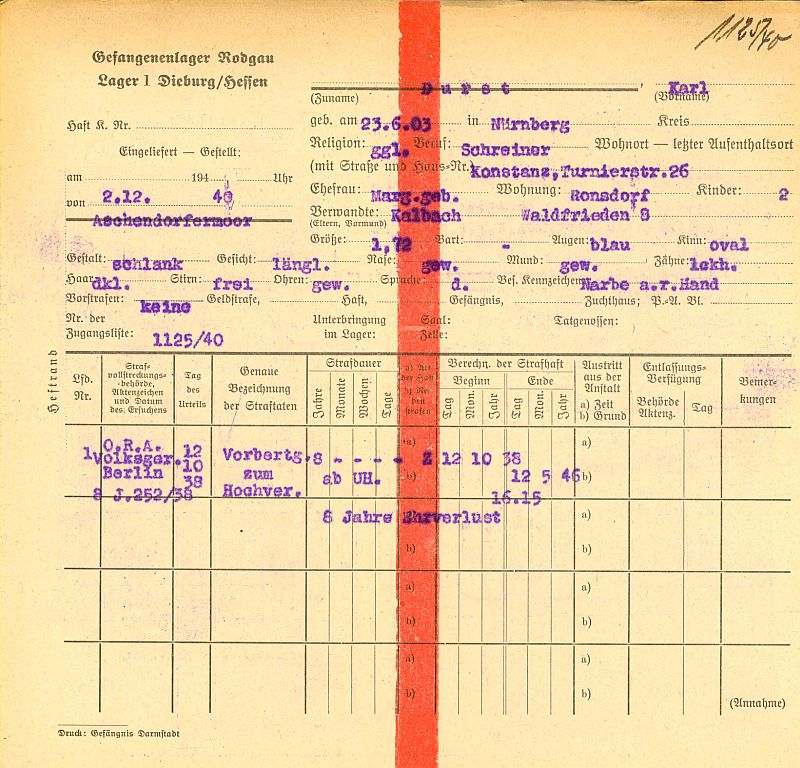 1125/40
Gefangenenlager Rodgau
Lager I Dieburg/Hessen
Durst, Karl
(Zuname) (Vorname)
Haft K. Nr.
geb. am 23.6.03 in Nürnberg Kreis
Eingeliefert — Gestellt:
Religion: ggl. Beruf: Schreiner Wohnort — letzter Aufenthaltsort
(mit Straße und Haus-Nr.) Konstanz, Turnierstr.26
am 2.12. 1940 Uhr
Ehefrau: Marg.geb. Wohnung: Ronsdorf Kinder: 2
von Aschendorfermoor
Verwandte: Kalbach Waldfrieden 8
(Eltern, Vormund)
Größe: 1,72 Bart: - Augen: blau Kinn: oval
Gestalt: schlank Gesicht: längl. Nase: gew. Mund: gew. Zähne: lckh.
Haar: dkl. Stirn: frei Ohren: gew. Sprache: d. Bes. Kennzeichen: Narbe a.r.Hand
Vorstrafen: keine Geldstrafe, Haft, Gefängnis, Zuchthaus; P.-A. Bl.
Nr. der Unterbringung Saal: Tatgenossen:
Zugangsliste: 1125/40 im Lager: Zelle:
Heftrand
Lfd. Nr.
Straf-
vollstreckungs-
behörde,
Aktenzeichen
und Datum
des Ersuchens
Tag
des
Urteils
Genaue
Bezeichnung
der Straftaten
Strafdauer
Jahre Monate Wochen Tage
a) Art
der Haft
b) Ne-
ben
strafen
Berechn. der Strafhaft
Beginn Ende
Tag Mon. Jahr Tag Mon. Jahr
Austritt
aus der
Anstalt
a) Zeit
b) Grund
Entlassungs-
Verfügung
Behörde
Aktenz. Tag
Bemer-
kungen
1 O.R.A. 12 a) a)
Volksger. 10 Vorbertg. 8 - - - - Z 12 10 38
Berlin 38 zum ab UH. b) 12 5 46 b)
8 J.252/38 Hochver. 16.15
8 Jahre Ehrverlust a) a)
b) b)
a) a)
b) b)
a) a)
b) b)
(Annahme)
Druck: Gefängnis Darmstadt